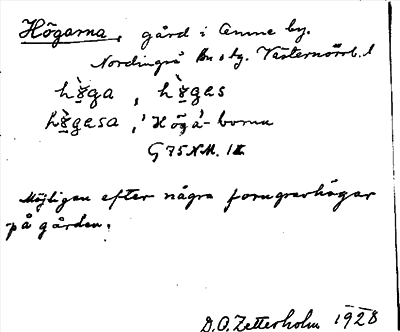 Högarna, gård i Amne by.
Nordingrå sn o tg. Västernorrl. l
hö̀ga, hö̀ges
hö̀gesa, 'Högå'-borna
G 75 N.M. II
Möjligen efter några forngravhögar
på gården.
D.O. Zetterholm 1928